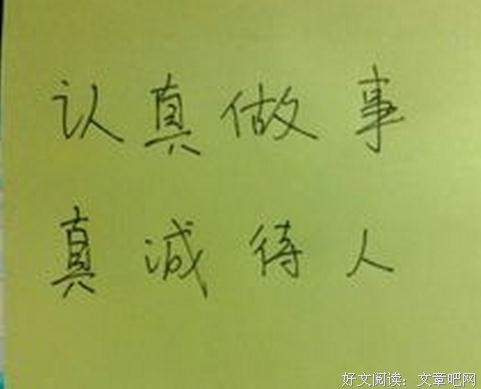 认真做事
真诚待人
好文阅读：文章吧网